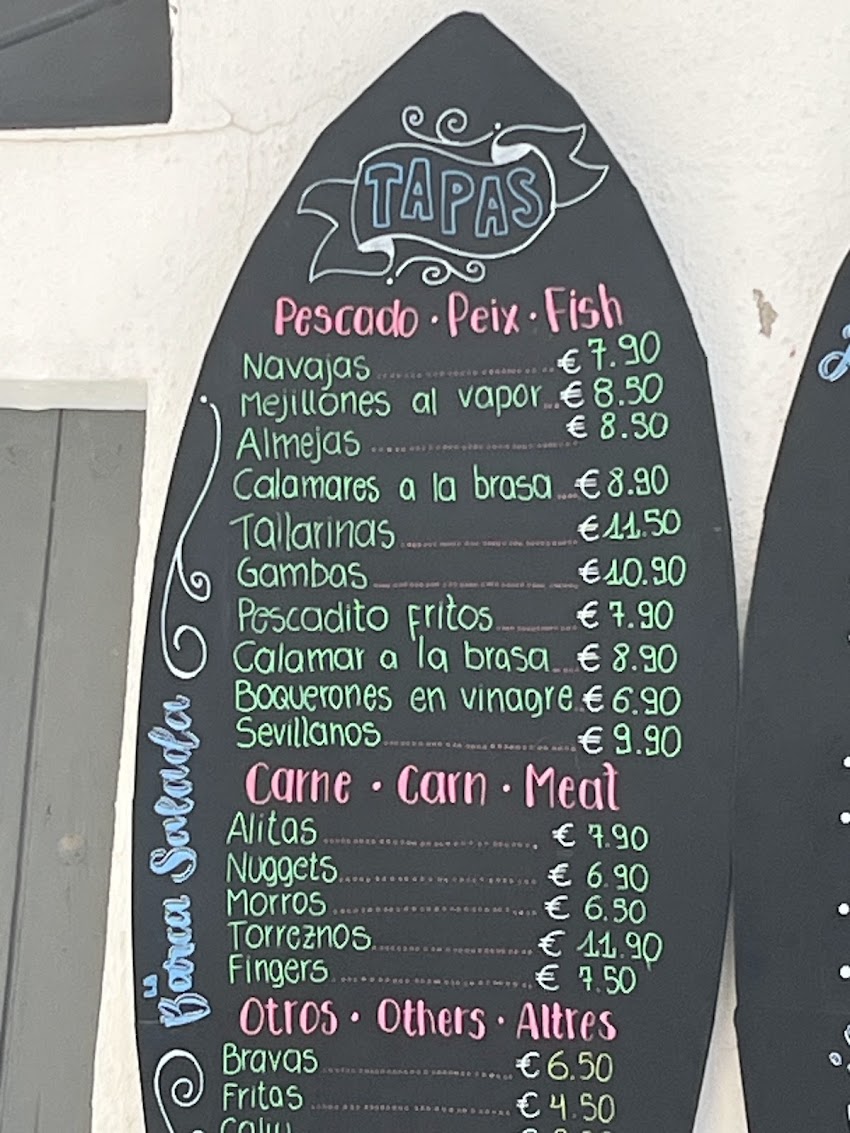 TAPAS
Pescado · Peix · Fish
Navajas € 7.90
Mejillones al vapor € 8.50
Almejas € 8.50
Calamares a la brasa € 8.90
Tallarinas € 11.50
Gambas € 10.90
Pescadito fritos € 7.90
Calamar a la brasa € 8.90
Boquerones en vinagre € 6.90
Sevillanos € 9.90
Carne · Carn · Meat
Alitas € 7.90
Nuggets € 6.90
Morros € 6.50
Torreznos € 11.90
Fingers € 7.50
Otros · Others · Altres
Bravas € 6.50
Fritas € 4.50
La Barca Salada